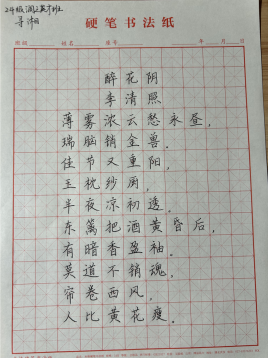 硬笔书法纸
班级 姓名 座号 年 月 日
醉花阴
李清照
薄雾浓云愁永昼，
瑞脑销金兽。
佳节又重阳，
玉枕纱厨，
半夜凉初透。
东篱把酒黄昏后，
有暗香盈袖。
莫道不销魂，
帘卷西风，
人比黄花瘦。